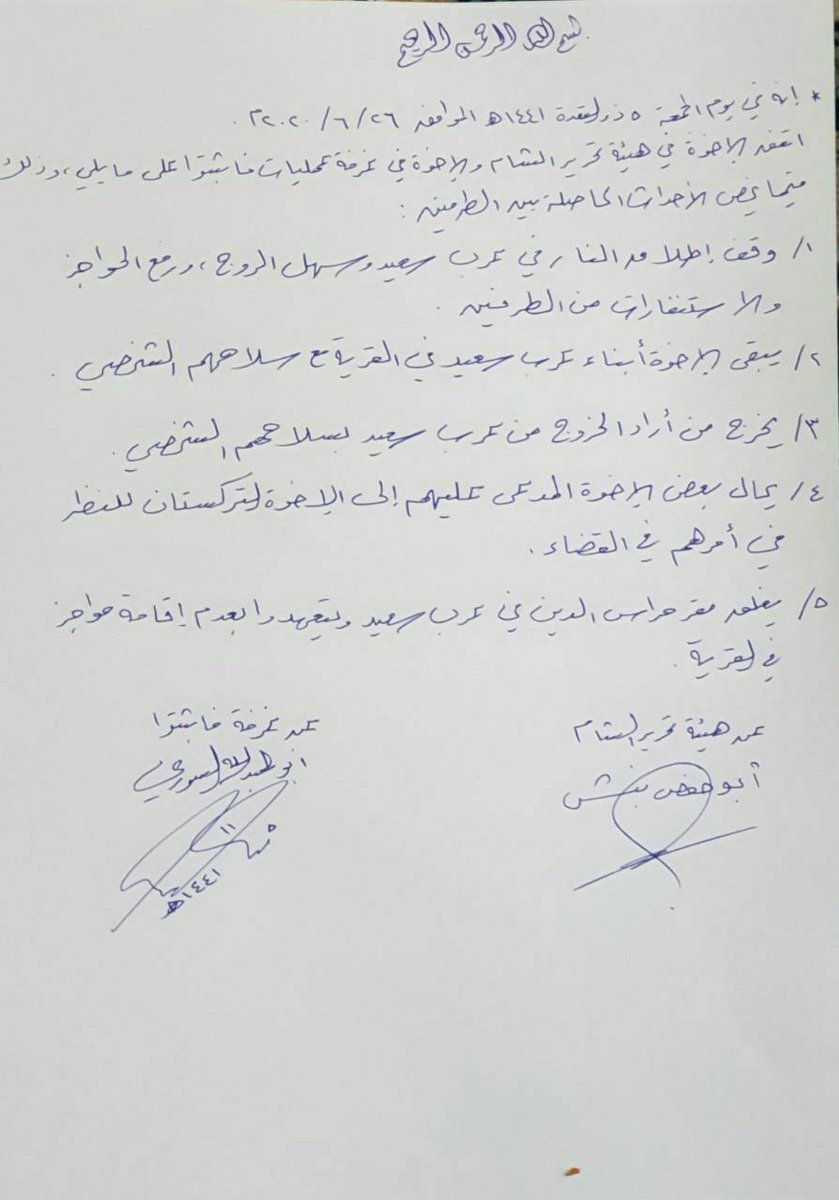 بسم الله الرحمن الرحيم
* إنه في يوم الجمعة ٥ ذو القعدة ١٤٤١هـ الموافق ٢٦/٦/٢٠٢٠م.
اتفق الإخوة في هيئة تحرير الشام والإخوة في غرفة عمليات فاثبتوا على ما يلي، وذلك
فيما يخص الأحداث الحاصلة بين الطرفين:
١/ وقف إطلاق النار في عرب سعيد وسهل الروج، ورفع الحواجز
والاستنفارات من الطرفين.
٢/ يبقى الإخوة أبناء عرب سعيد في القرية مع سلاحهم الشخصي.
٣/ يخرج من أراد الخروج من عرب سعيد بسلاحهم الشخصي.
٤/ يحال بعض الإخوة المدعى عليهم إلى الإخوة التركستان للنظر
في أمرهم في القضاء.
٥/ يغلق مقر حراس الدين في عرب سعيد ويتعهدوا بعدم إقامة حواجز
في القرية.
عن هيئة تحرير الشام
أبو حفص بنش
عن غرفة فاثبتوا
أبو عبد الله السوري
١٤٤١هـ